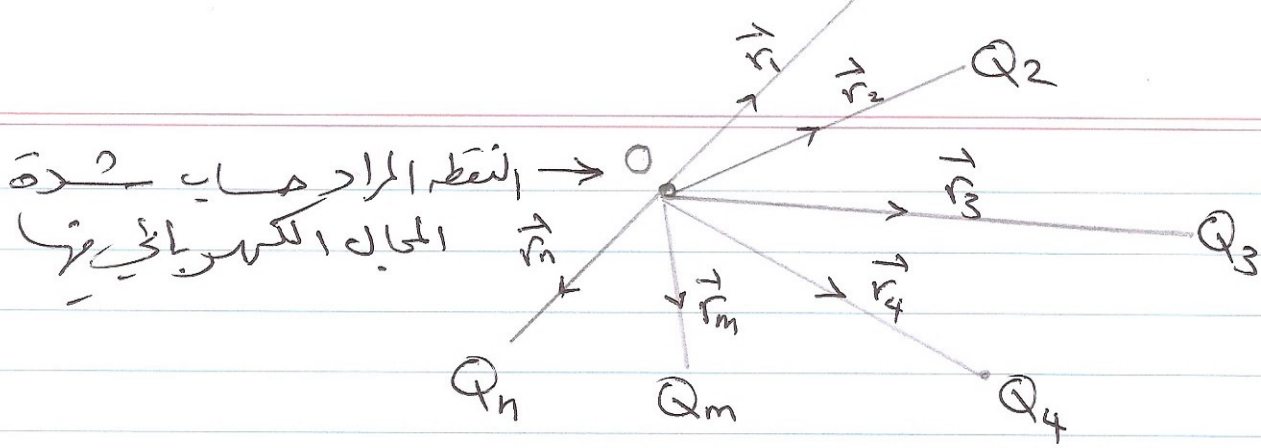 r₁
r₂
Q2
O
النقطه المراد حساب شدة
المجال الكهربائي فيها
r₃
Q₃
rₙ
rₘ
r₄
Qₙ
Qₘ
Q₄